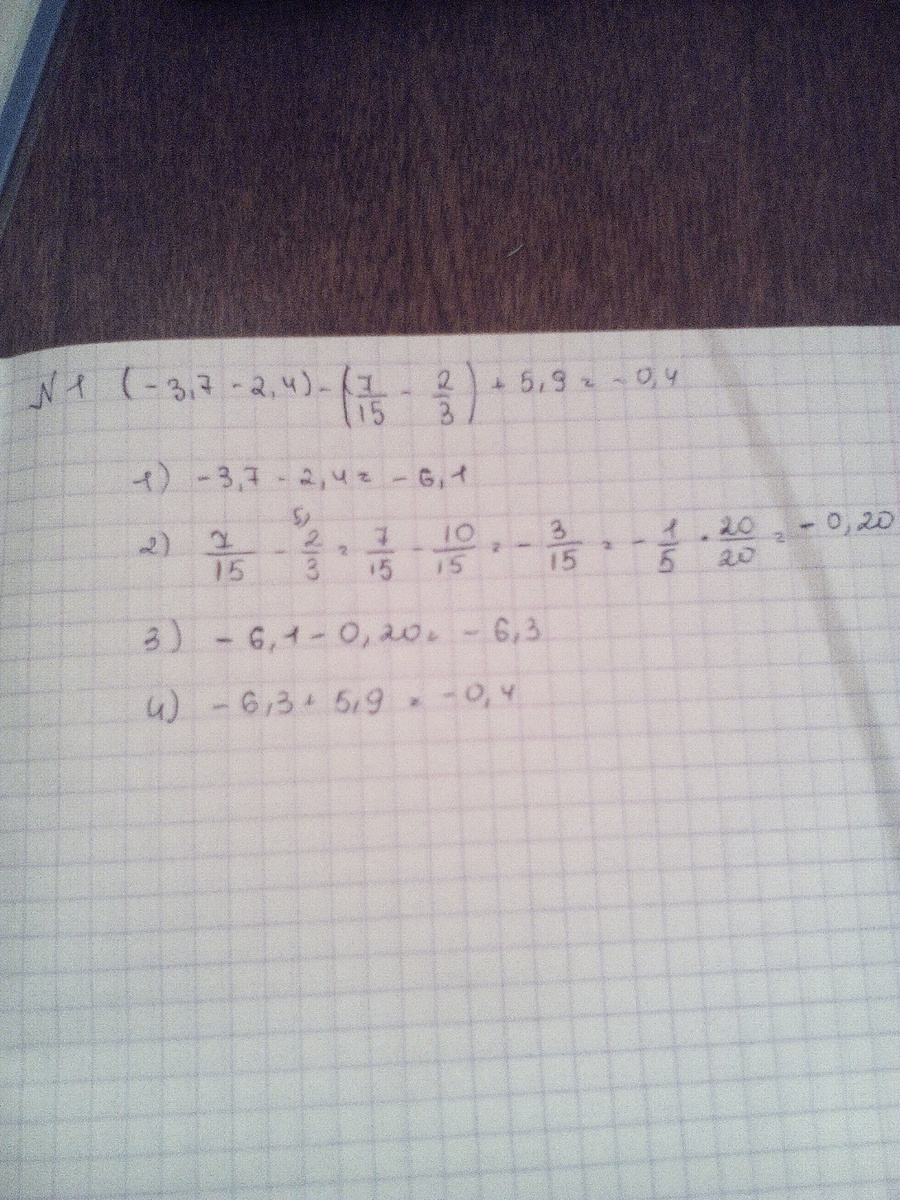 N 1 (-3,7 - 2,4) - (7/15 - 2/3) + 5,9 = -0,4
1) -3,7 - 2,4 = -6,1
2) 7/15 - 2/3 5) = 7/15 - 10/15 = - 3/15 = - 1/5 · 20/20 = - 0,20
3) - 6,1 - 0,20 = - 6,3
4) - 6,3 + 5,9 = -0,4